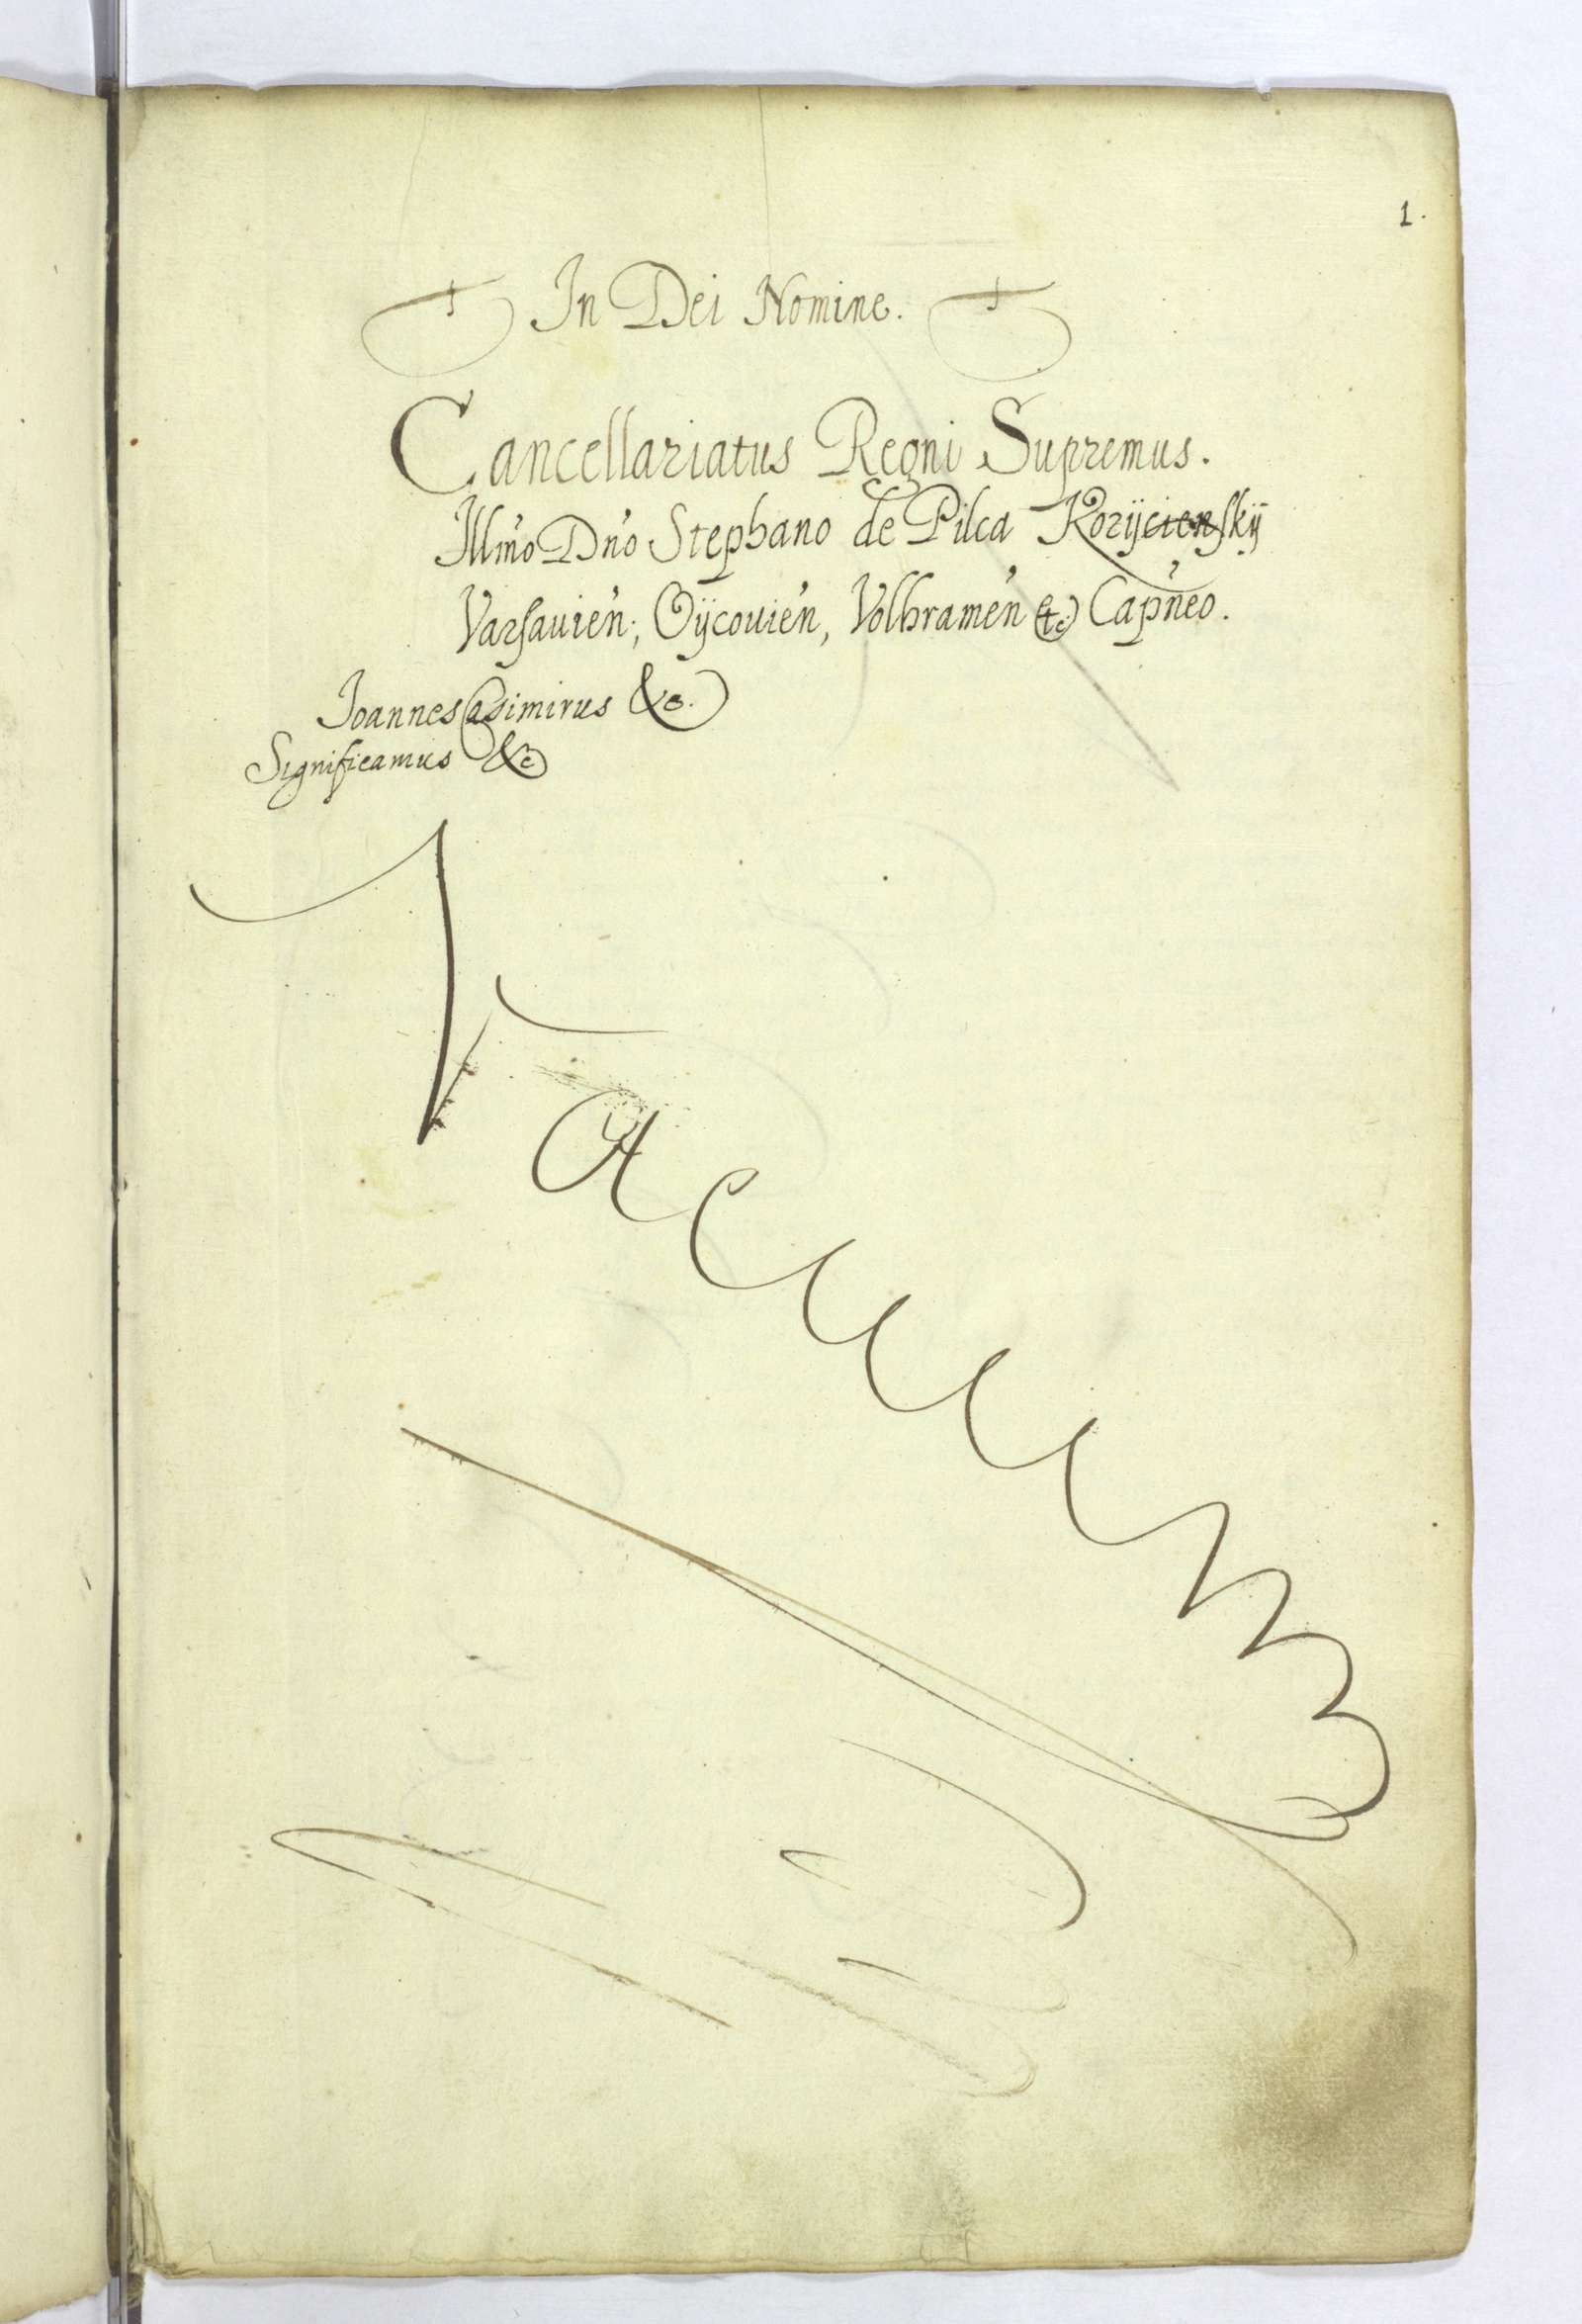 1.
In Dei Nomine.
Cancellariatus Regni Supremus.
Illm̃o Dño Stephano de Pilca Korÿcienskÿ
Varsauień; Oÿcouień, Volhrameń etc Capńeo.
Joannes Casimirus &c.
Significamus &c
Vacuum